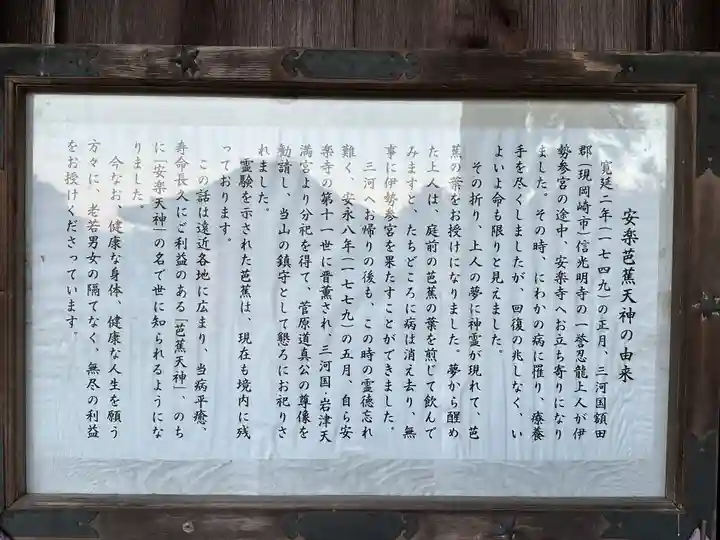 安楽芭蕉天神の由来
寛延二年(一七四九)の正月、三河国額田
郡(現岡崎市)信光明寺の一誉忍龍上人が伊
勢参宮の途中、安楽寺へお立ち寄りになり
ました。その時、にわかの病に罹り、療養
手を尽くしましたが、回復の兆しなく、い
よいよ命も限りと見えました。
その折り、上人の夢に神霊が現れて、芭
蕉の葉をお授けになりました。夢から醒め
た上人は、庭前の芭蕉の葉を煎じて飲んで
みますと、たちどころに病は消え去り、無
事に伊勢参宮を果たすことができました。
三河へお帰りの後も、この時の霊徳忘れ
難く、安永八年(一七七九)の五月、自ら安
楽寺の第十一世に晋薫され、三河国・岩津天
満宮より分祀を得て、菅原道真公の尊像を
勧請し、当山の鎮守として懇ろにお祀りさ
れました。
霊験を示された芭蕉は、現在も境内に残
っております。
この話は遠近各地に広まり、当病平癒、
寿命長久にご利益のある「芭蕉天神」、のち
に「安楽天神」の名で世に知られるようにな
りました。
今なお、健康な身体、健康な人生を願う
方々に、老若男女の隔てなく、無尽の利益
をお授けくださっています。